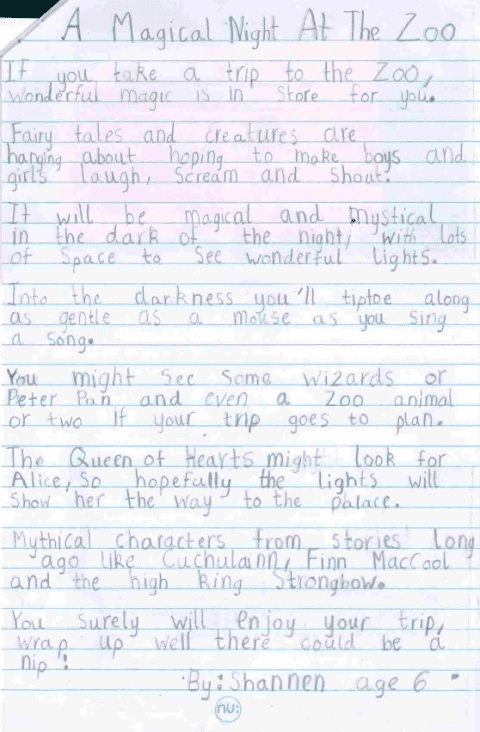 A Magical Night At The Zoo
If you take a trip to the Zoo,
wonderful magic is in store for you.
Fairy tales and creatures are
hanging about hoping to make boys and
girls laugh, Scream and Shout.
It will be magical and mystical
in the dark of the night, with lots
of Space to See wonderful lights.
Into the darkness you'll tiptoe along
as gentle as a mouse as you sing
a song.
You might See some wizards or
Peter Pan and even a Zoo animal
or two If your trip goes to plan.
The Queen of Hearts might look for
Alice, So hopefully the lights will
Show her the way to the palace.
Mythical characters from stories long
ago like Cuchulainn, Finn MacCool
and the high King Strongbow.
You Surely will enjoy your trip,
wrap up well there could be a
nip !
By: Shannen age 6